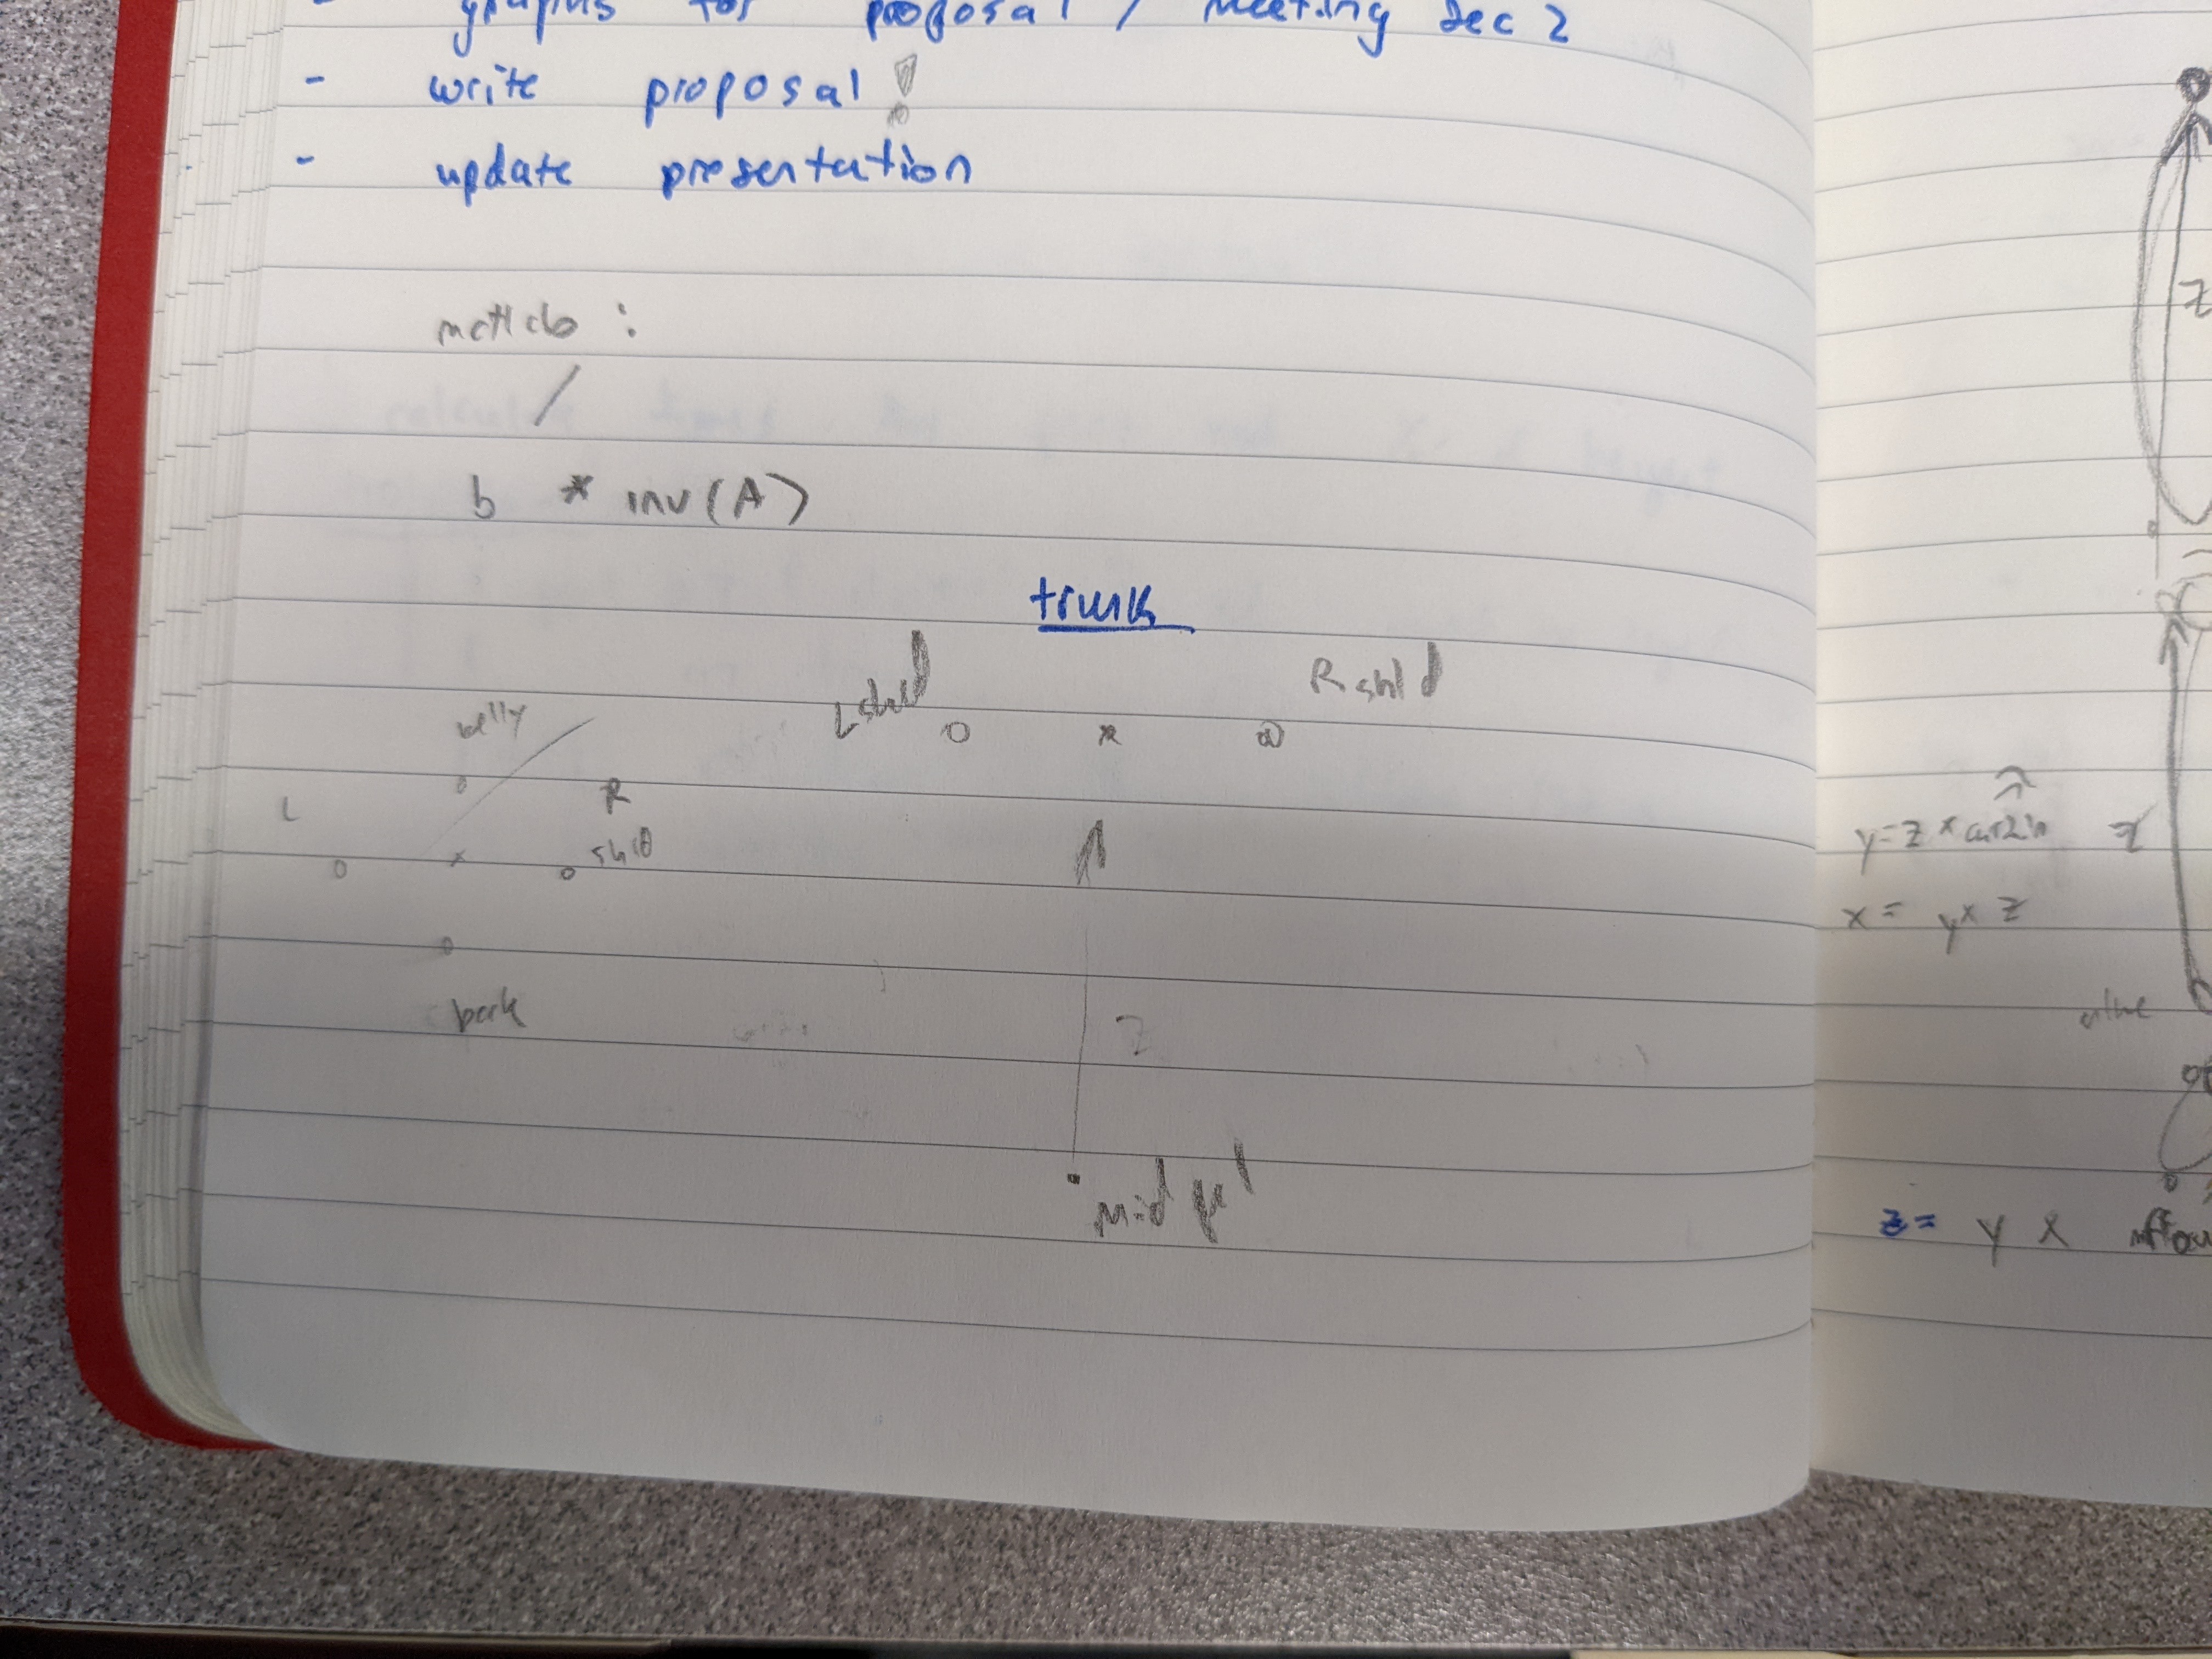 - graphs for proposal / meeting Dec 2
- write proposal!
- update presentation
matlab :
/
b * inv(A)
trunk
L shld
R shld
belly
L
R
shld
back
z
mid pel
z
y = z ×
z
x = y × z
z = y x